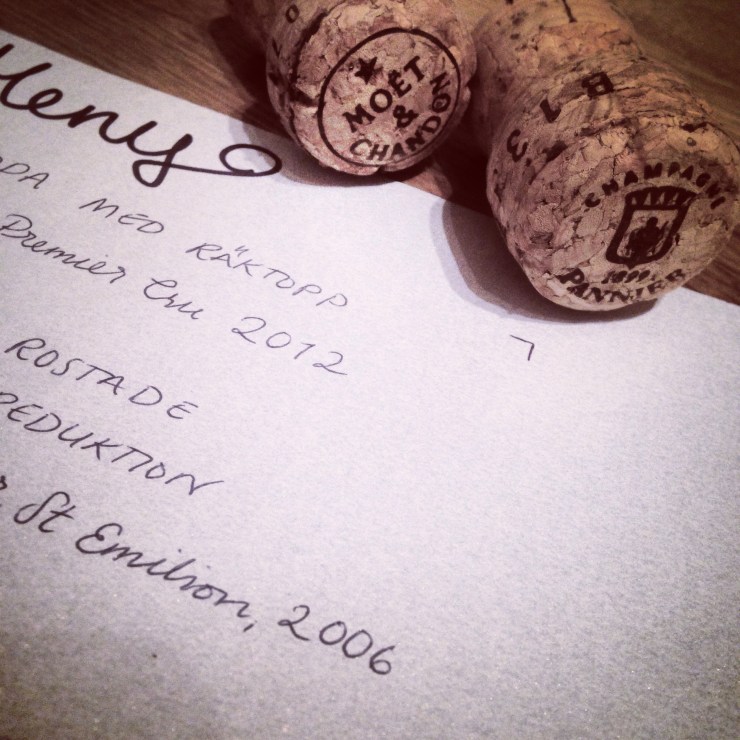 Meny
MED RÄKTOPP
Premier Cru 2012
ROSTADE
REDUKTION
St Emilion, 2006
MOËT
&
CHANDON
CHAMPAGNE
1899
PANNIER